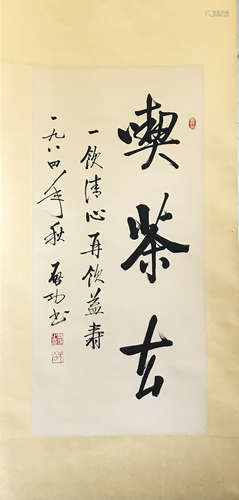 喫茶去
一饮清心再饮益寿
一九八四年秋
启功书